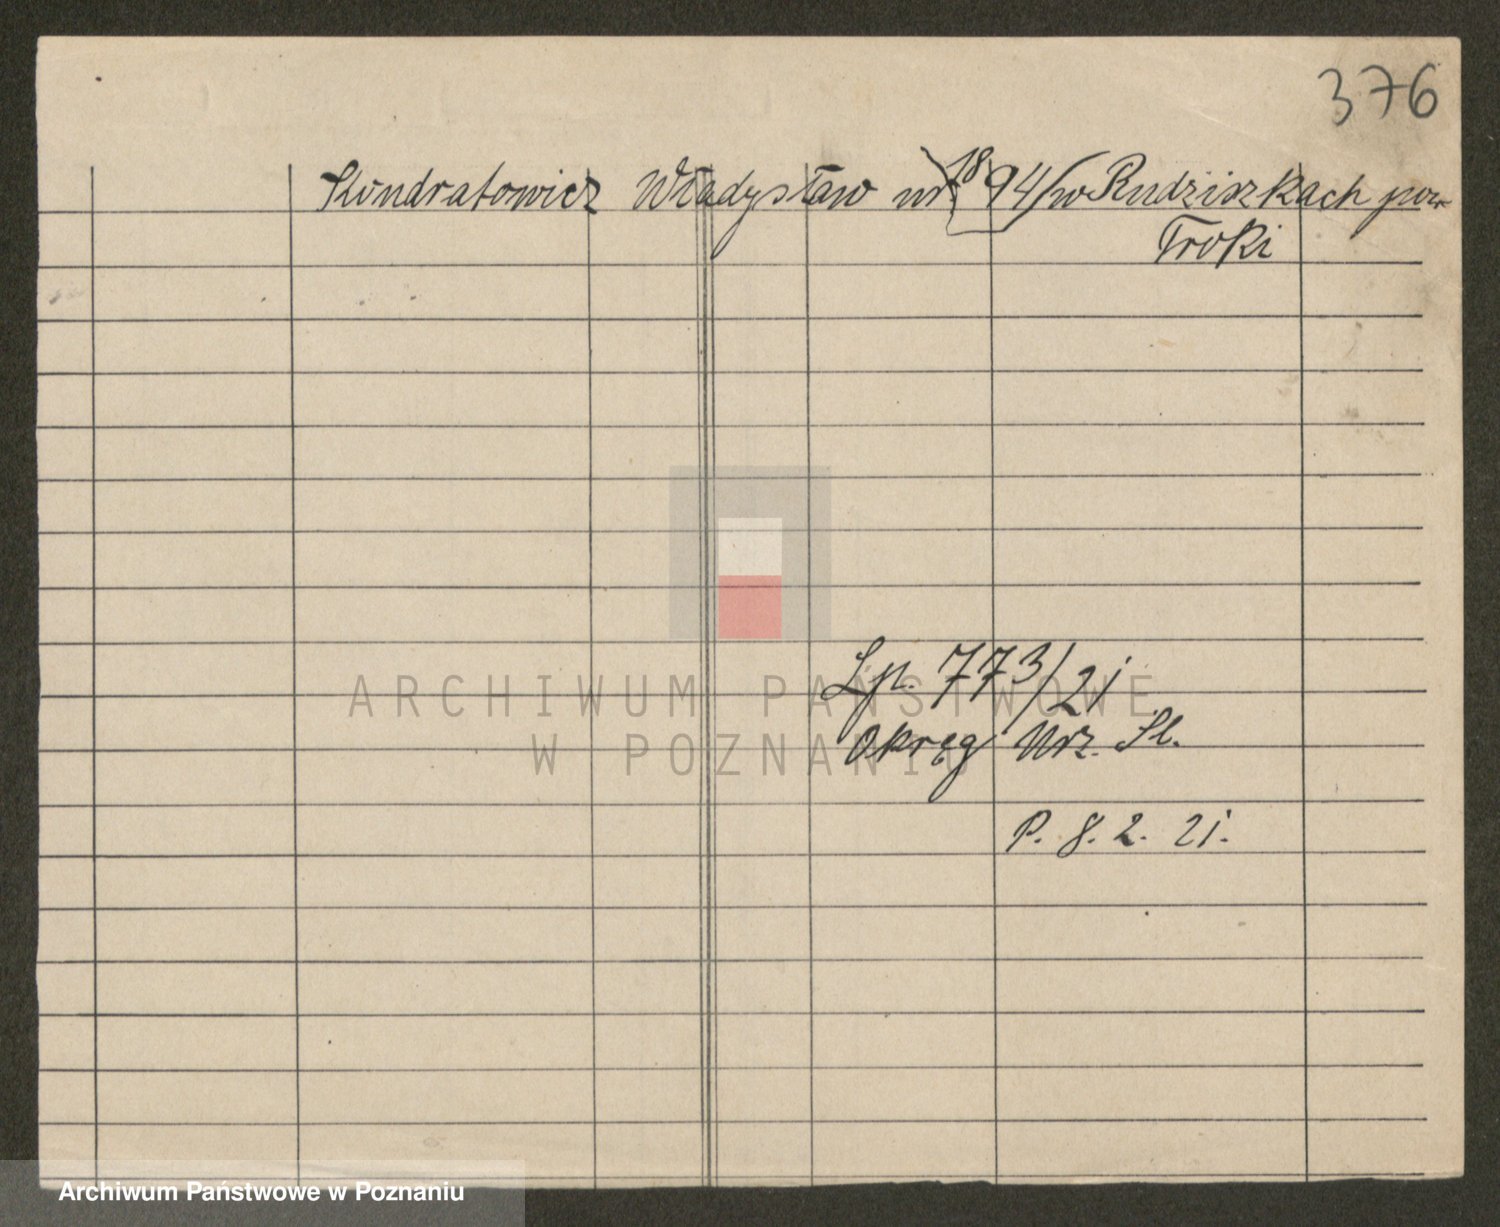 376
Kondratowicz Władysław ur. 1894 w Rudziszkach pow.
Troki
ARCHIWUM PAŃSTWOWE
W POZNANIU
Lp. 773/21
Okręg Urz. Śl.
P. 8. 2. 21.
Archiwum Państwowe w Poznaniu